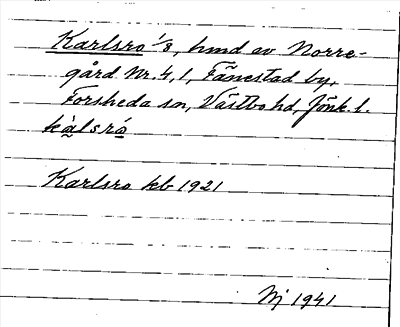 Karlsro 1/8, hmd av Norre-
gård Nr. 4,1, Fänestad by,
Forsheda sn, Västbo hd, Jönk. l.
kàlsró
Karlsro kb 1921
Nj 1941